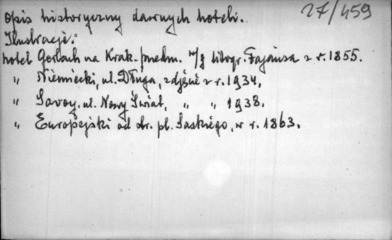 Opis historyczny dawnych hoteli. 27/459
Ilustracje:
hotel Gerlach na Krak. Przedm. w/g litogr. Fajansa z r. 1855.
" Niemiecki, ul. Długa, zdjęcie z r. 1934,
" Savoy, ul. Nowy Świat, " " 1938.
" Europejski od str. pl. Saskiego, w r. 1863.